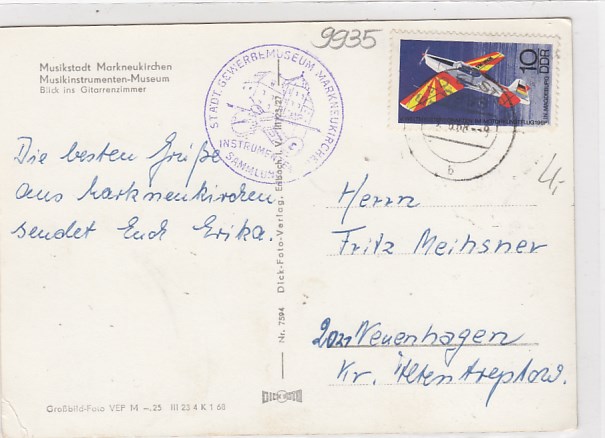 Musikstadt Markneukirchen
Musikinstrumenten-Museum
Blick ins Gitarrenzimmer
9935
STÄDT. GEWERBEMUSEUM MARKNEUKIRCHEN
INSTRUMENTEN
SAMMLUNG
10
DDR
b
Die besten Grüße
aus Markneukirchen
sendet Euch Erika.
Nr. 7594 Dick-Foto-Verlag, Erlbach i. V.
Herrn
Fritz Meihsner
Neuenhagen
Kr. Altentreptow.
4,-
Großbild-Foto VEP M –.25 III 23 4 K 1 68
DICK FOTO